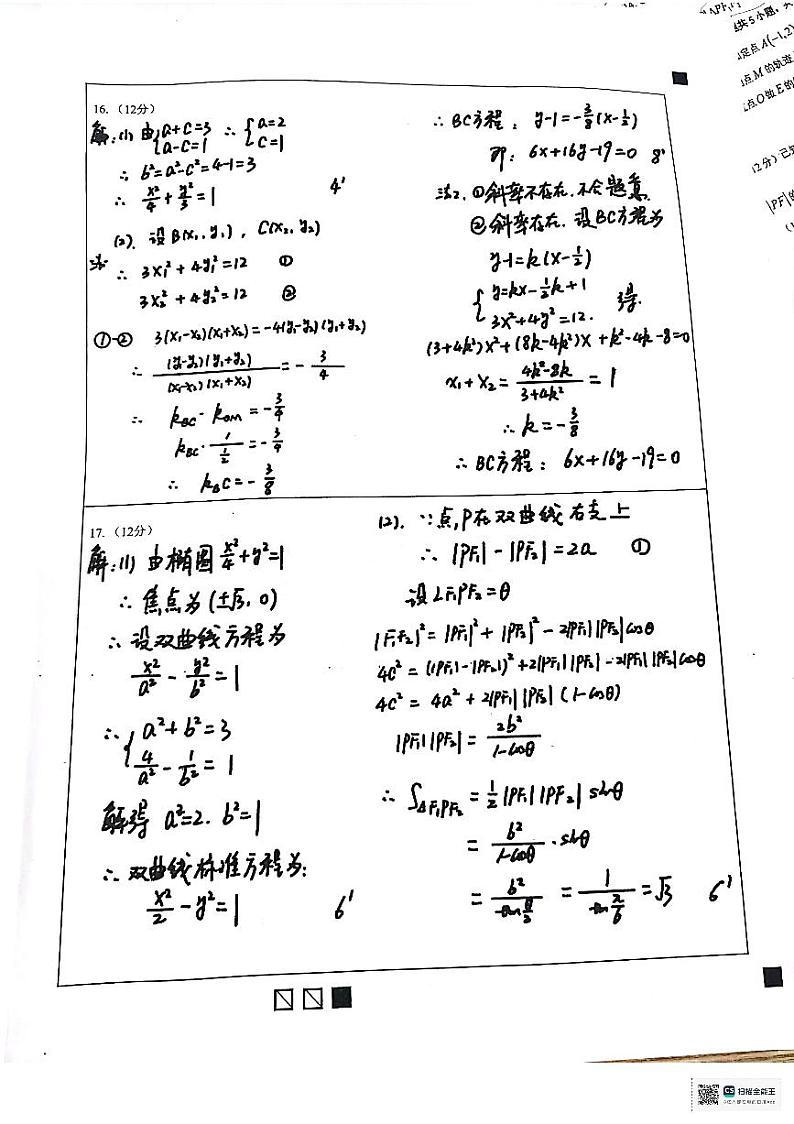 共5小题
定点A(-1,2)
点M的轨迹
点O做E的
12分) 已
|PF|的
16. (12分)
解:(1) 由{a+c=3 ∴ {a=2
a-c=1 c=1
∴ b²=a²-c²=4-1=3
∴ x²/4 + y²/3 = 1 4'
(2). 设B(x₁, y₁), C(x₂, y₂)
法1.
∴ 3x₁² + 4y₁² = 12 ①
3x₂² + 4y₂² = 12 ②
①-② 3(x₁-x₂)(x₁+x₂) = -4(y₁-y₂)(y₁+y₂)
∴ (y₁-y₂)(y₁+y₂)/(x₁-x₂)(x₁+x₂) = -3/4
∴ k_BC · k_OM = -3/4
k_BC · 1/(1/2) = -3/4
∴ k_BC = -3/8
∴ BC方程: y-1=-3/8(x-1/2)
即: 6x+16y-19=0 8'
法2. ①斜率不存在. 不合题意.
②斜率存在. 设BC方程为
y-1=k(x-1/2)
{y=kx-1/2k+1
3x²+4y²=12. 得.
(3+4k²)x²+(8k-4k²)x+k²-4k-8=0
x₁+x₂ = (4k²-8k)/(3+4k²) = 1
∴ k = -3/8
∴ BC方程: 6x+16y-19=0
17. (12分)
解:(1) 由椭圆x²/4+y²=1
∴ 焦点为(±√3, 0)
∴ 设双曲线方程为
x²/a² - y²/b² = 1
∴ {a²+b²=3
4/a² - 1/b² = 1
解得 a²=2. b²=1
∴ 双曲线标准方程为:
x²/2 - y² = 1 6'
(2). ∵点P在双曲线右支上
∴ |PF₁| - |PF₂| = 2a ①
设∠F₁PF₂=θ
|F₁F₂|² = |PF₁|² + |PF₂|² - 2|PF₁||PF₂|cosθ
4c² = (|PF₁|-|PF₂|)² + 2|PF₁||PF₂| - 2|PF₁||PF₂|cosθ
4c² = 4a² + 2|PF₁||PF₂|(1-cosθ)
|PF₁||PF₂| = 2b²/(1-cosθ)
∴ S_△F₁PF₂ = 1/2|PF₁||PF₂| sinθ
= b²/(1-cosθ) · sinθ
= b²/tan(θ/2) = 1/tan(π/6) = √3 6'
CS 扫描全能王